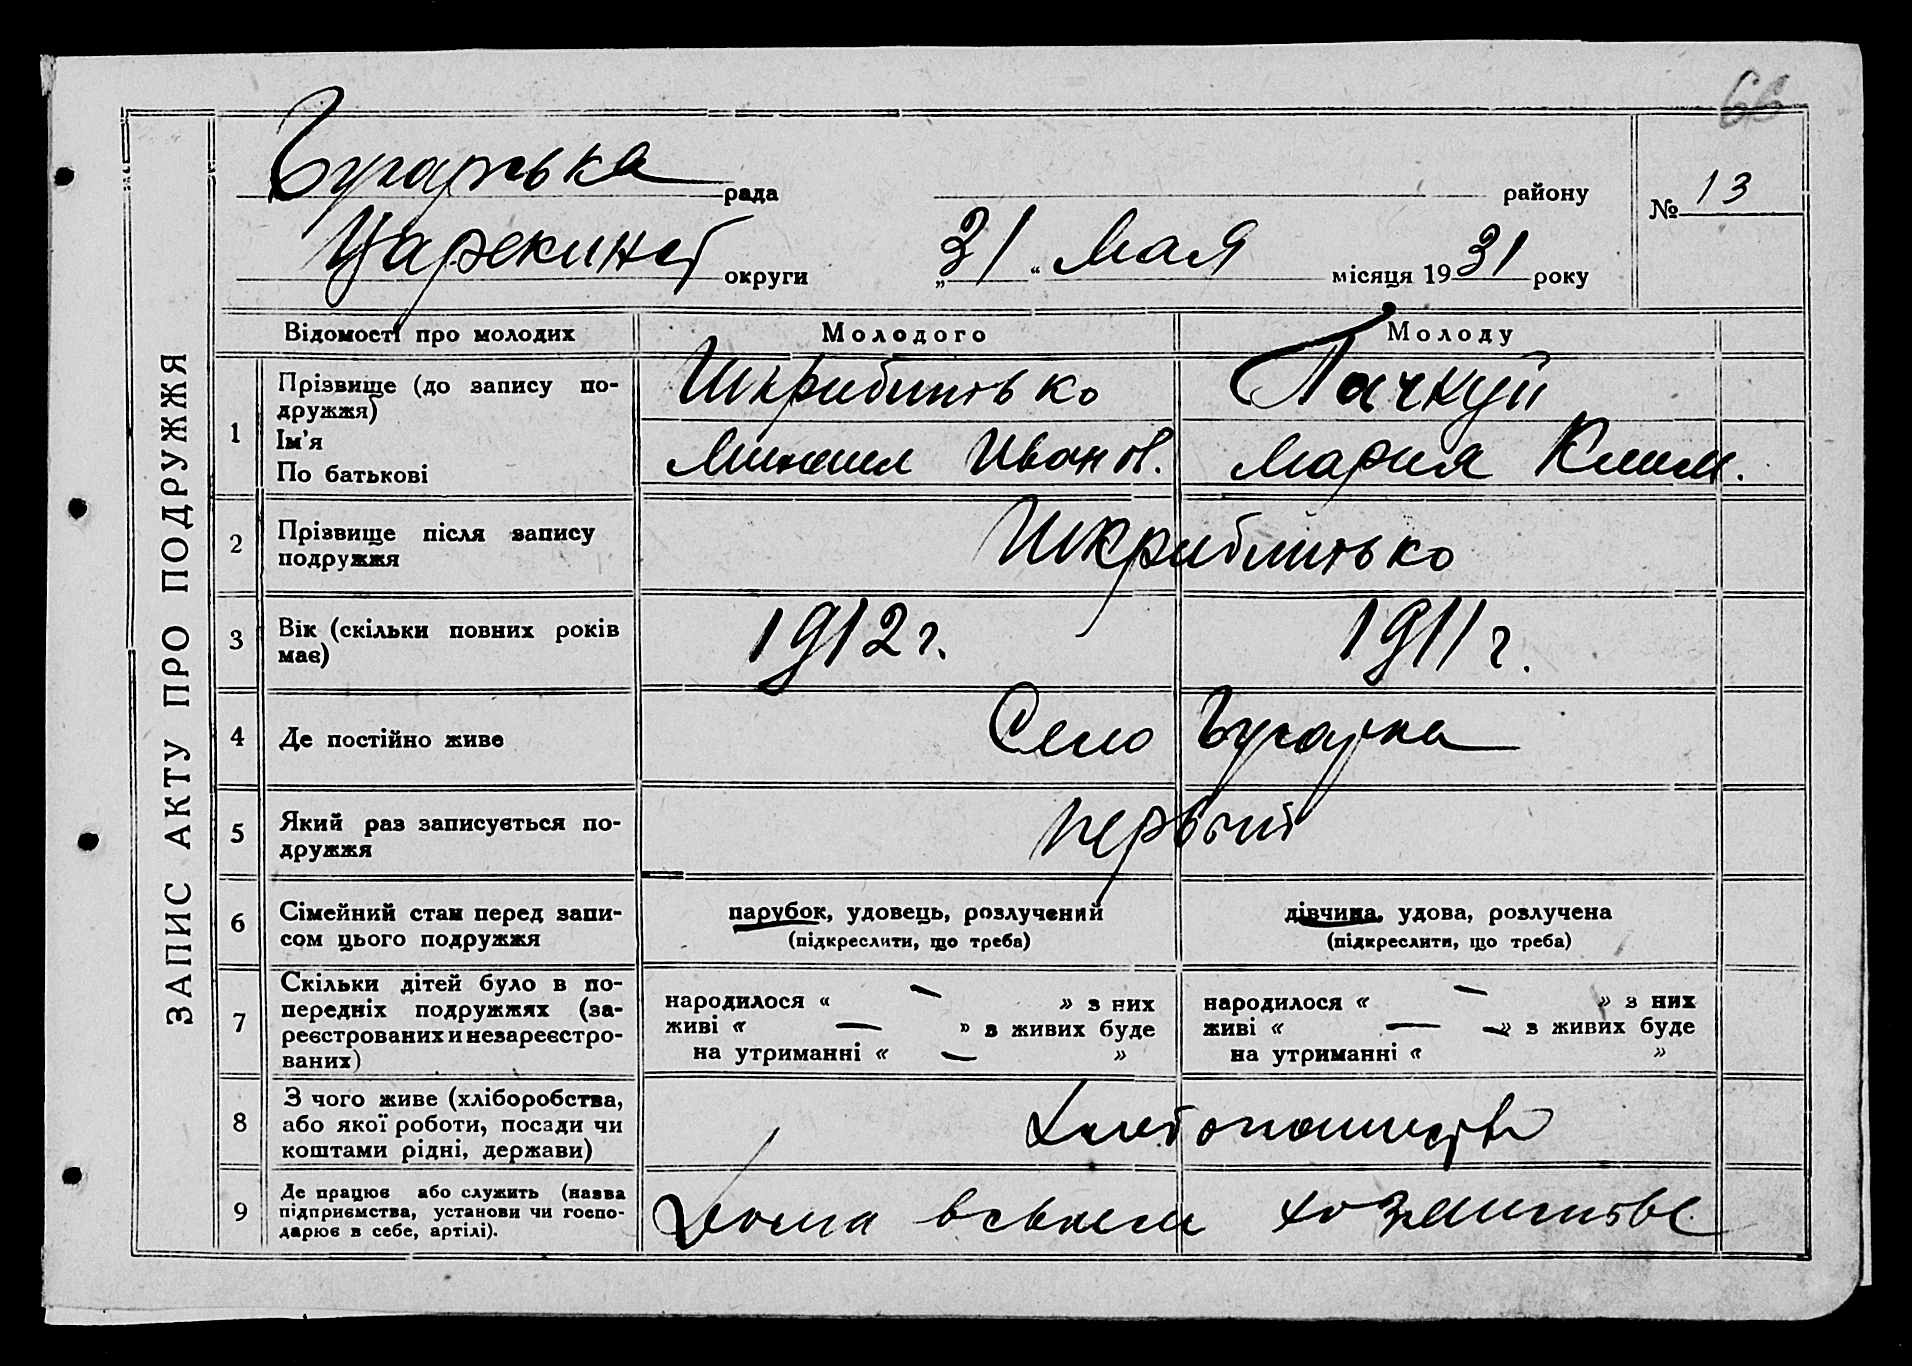 66
рада
району
№ 13
округи
„ 31 “ Мая місяця 19 31 року
ЗАПИС АКТУ ПРО ПОДРУЖЖЯ
Відомості про молодих
Молодого
Молоду
1
Прізвище (до запису по-
дружжя)
Ім'я
По батькові
Пачкуй
Михаил Иванов.
Мария Клим.
2
Прізвище після запису
подружжя
3
Вік (скільки повних років
має)
1912 г.
1911 г.
4
Де постійно живе
Село
5
Який раз записується по-
дружжя
первый
6
Сімейний стан перед запи-
сом цього подружжя
парубок, удовець, розлучений
(підкреслити, що треба)
дівчина, удова, розлучена
(підкреслити, що треба)
7
Скільки дітей було в по-
передніх подружжях (за-
реєстрованих и незареєстро-
ваних)
народилося « — » з них
живі « — » з живих буде
на утриманні « — »
народилося « — » з них
живі « — » з живих буде
на утриманні « »
8
З чого живе (хліборобства,
або якої роботи, посади чи
коштами рідні, держави)
Хлебопашество
9
Де працює або служить (назва
підприємства, установи чи госпо-
дарює в себе, артілі).
Дома в своем хозяйстве